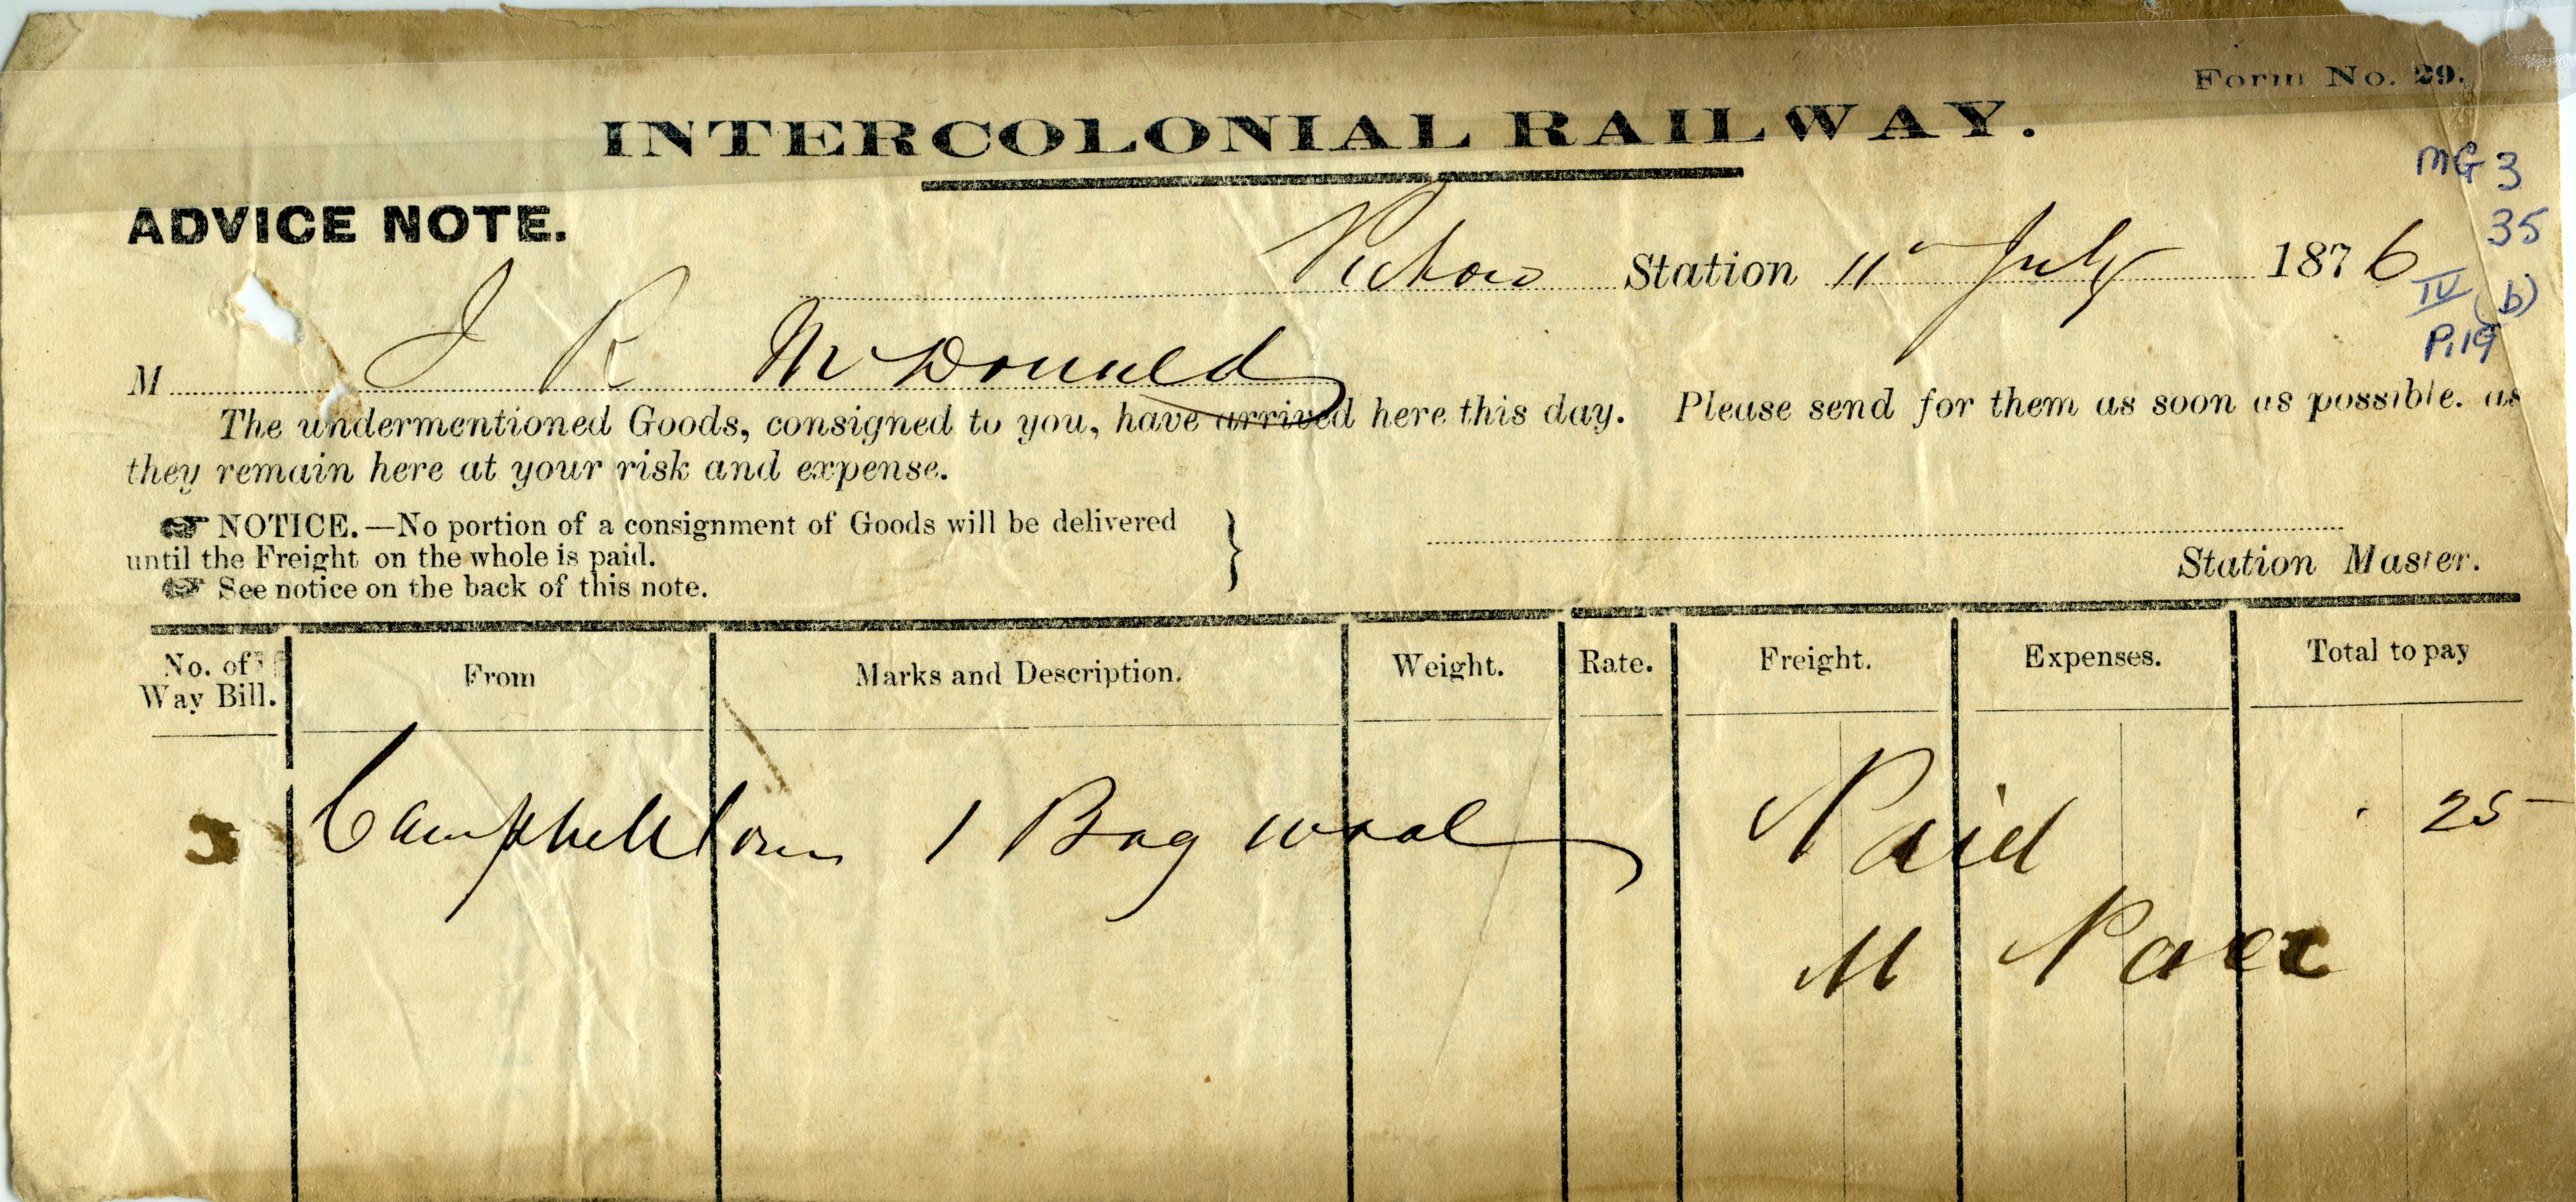 Form No. 29.
INTERCOLONIAL RAILWAY.
MG 3
35
IV (b)
P.19
ADVICE NOTE.
Pictou Station 11 July 1876
M J R McDonald
The undermentioned Goods, consigned to you, have arrived here this day. Please send for them as soon as possible. as
they remain here at your risk and expense.
☞ NOTICE.—No portion of a consignment of Goods will be delivered
until the Freight on the whole is paid.
☞ See notice on the back of this note.
Station Master.
No. of Way Bill. From Marks and Description. Weight. Rate. Freight. Expenses. Total to pay
Campbellton 1 Bag wool Paid 25
M